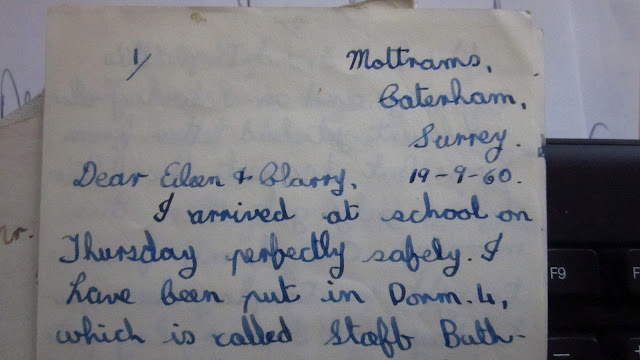 1/
Mottrams,
Caterham,
Surrey.
Dear Eileen & Clarry, 19-9-60.
I arrived at school on
Thursday perfectly safely. I
have been put in Dorm. 4,
which is called Staff Bath-
F9